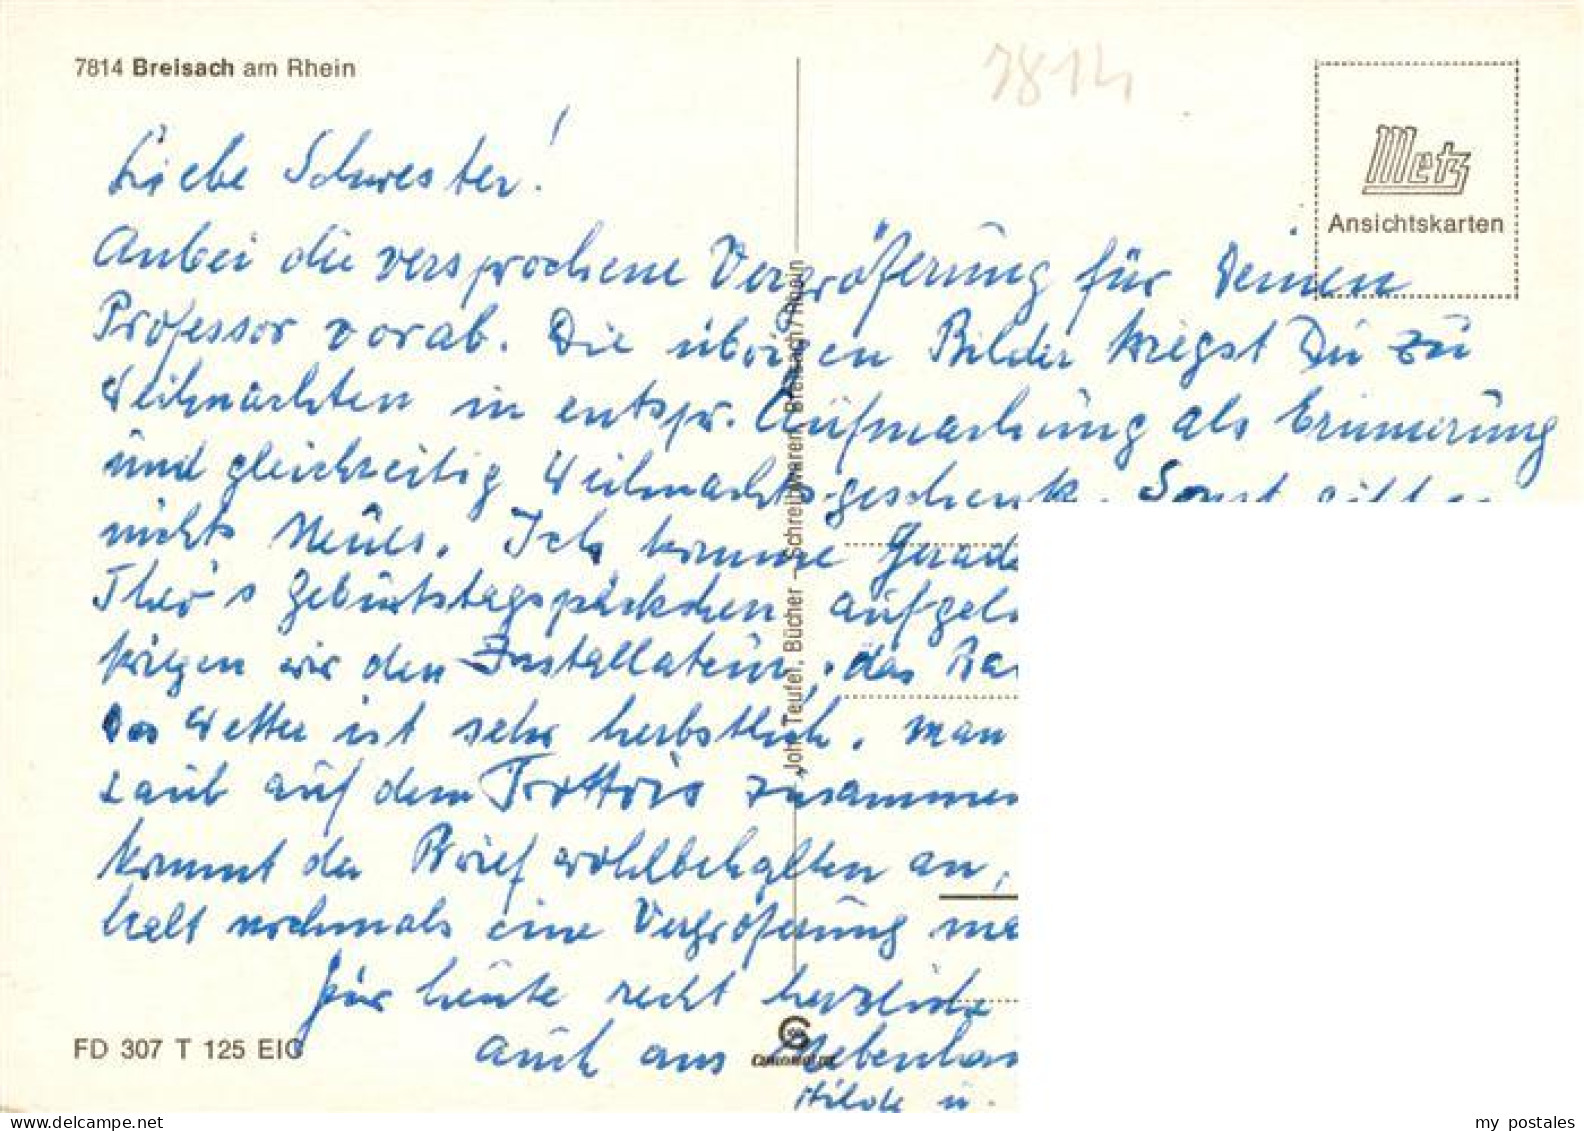 7814 Breisach am Rhein
7814
Metz
Ansichtskarten
Liebe Schwester!
Anbei die versprochene Vergrößerung für Deinen
Professor vorab. Die übrigen Bilder kriegst Du zu
Weihnachten in entspr. Aufmachung als Erinnerung
und gleichzeitig Weihnachtsgeschenk. Sonst gibt es
nichts Neues. Ich komme gerade
Theo's Geburtstagspäckchen aufge
kriegen wir den Installateur, das
Das Wetter ist sehr herbstlich. Man
Laub auf dem Trottoir zusammen
kommt der Brief wohlbehalten an,
halt nochmals eine Vergrößerung ma
Für heute recht herzliche
auch aus
Hilde u.
Joh. Teufel, Bücher – Schreibwaren, Breisach/Rhein
FD 307 T 125 EIG
my postales
www.delcampe.net